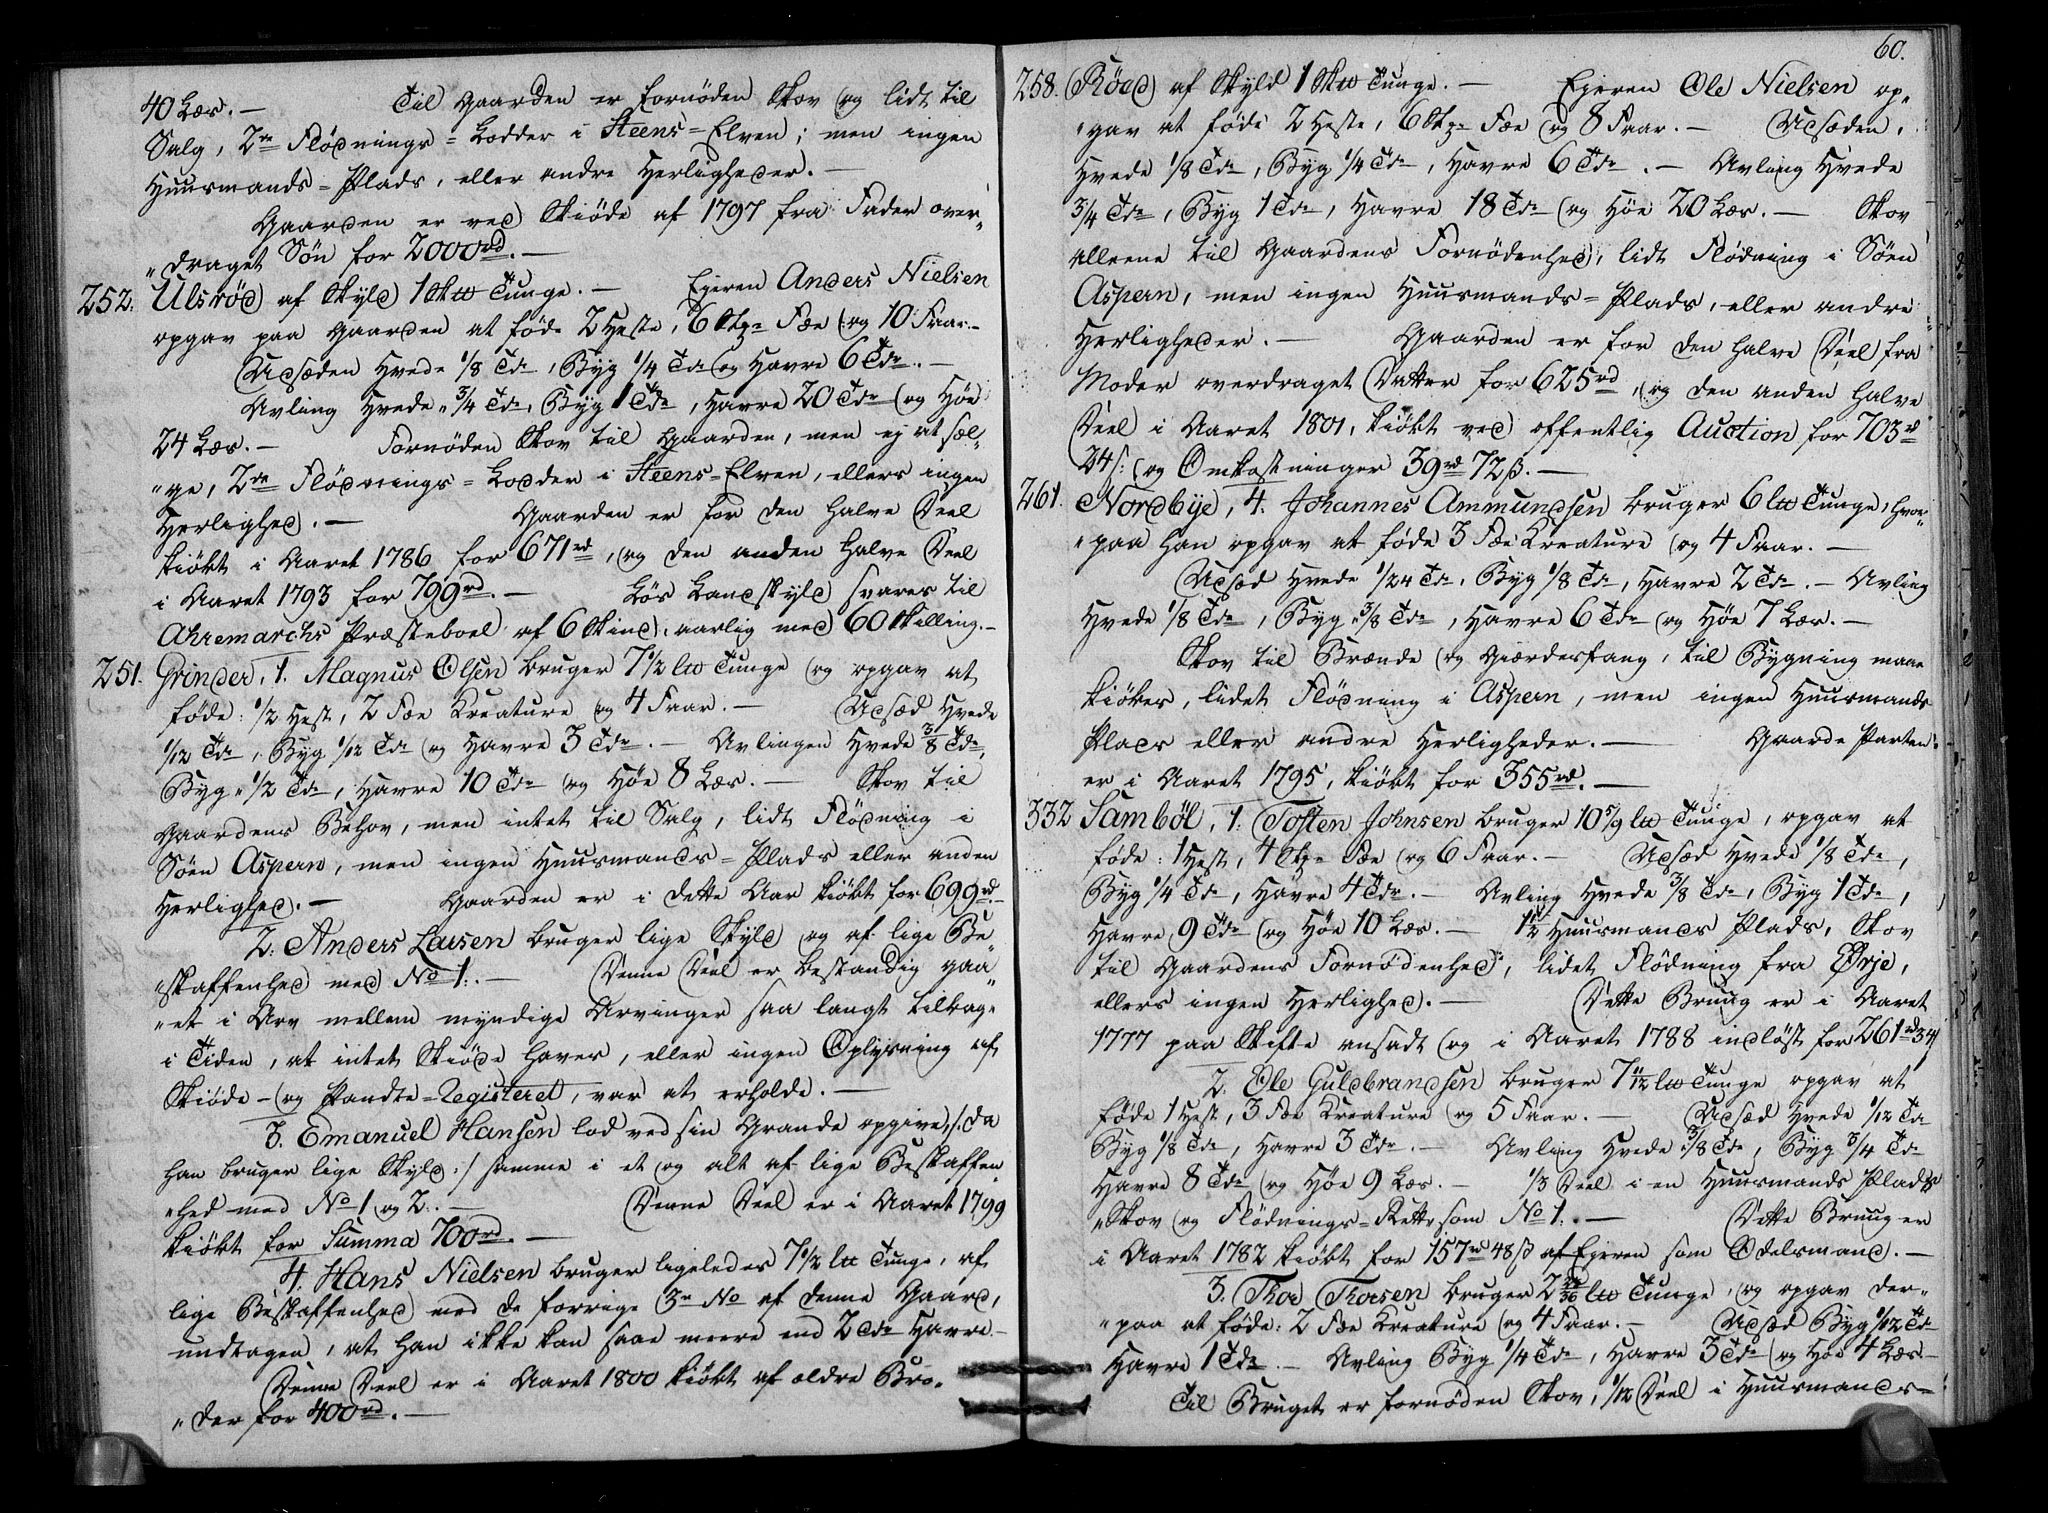 40 Læs. — Til Gaarden er fornøden Skov og lidt til
Salg, 2de Flødnings-Lodder i Steens-Elven; men ingen
Huusmands-Plads, eller andre Herligheder. —
Gaarden er ved Skiøde af 1797 fra Fader over„
„draget Søn for 2000rd. —
252. Ulsrød af Skyld 1 Skll Tunge. — Ejeren Anders Nielsen
opgav paa Gaarden at føde 2 Heste, 6 Stkr Fæe og 10 Faar. —
Udsæden Hvede 1/8 Tde, Byg 1/4 Tde og Havre 6 Tdr. —
Avling Hvede 3/4 Tde, Byg 1 Tde, Havre 20 Tdr og Høe
24 Læs. — Fornøden Skov til Gaarden, men ej at sæl„
„ge, 2de Flødnings-Lodder i Steens-Elven, ellers ingen
Herlighed. — Gaarden er for den halve Deel
kiøbt i Aaret 1786 for 671rd, og den anden halve Deel
i Aaret 1793 for 799rd. — Løs Landskyld svares til
Ahremarchs Præsteboel af 6 Skind, aarlig med 60 Skilling. —
251. Grinder, 1. Magnus Olsen bruger 7 1/2 lll Tunge og opgav at
føde: 1/2 Hest, 2 Fæe Kreature og 4 Faar. — Udsæd Hvede
1/12 Tde, Byg 1/12 Tde og Havre 3 Tdr. — Avlingen Hvede 3/8 Tde,
Byg 1/2 Tde, Havre 10 Tdr og Høe 8 Læs. — Skov til
Gaardens Behov, men intet til Salg, lidt Flødning i
Søen Aspern, men ingen Huusmands-Plads eller anden
Herlighed. — Gaarden er i dette Aar kiøbt for 699rd. —
2. Anders Larsen bruger lige Skyld og af lige Be„
„skaffenhed med No 1. — Denne Deel er bestandig gaa„
„et i Arv mellem myndige Arvinger saa langt tilbage
i Tiden, at intet Skiøde haves, eller ingen Oplysning af
Skiøde- og Pandte-Registeret, var at erholde. —
3. Emanuel Hansen lod ved sin Grande opgive, /: da
han bruger lige Skyld :/ samme i et og alt af lige Beskaffen
„hed med No 1 og 2. — Denne Deel er i Aaret 1799
kiøbt for Summa 700rd. —
4. Hans Nielsen bruger ligeledes 7 1/2 lll Tunge, af
lige Beskaffenhed med de forrige 3de No af denne Gaard,
undtagen, at han ikke kan saae meere end 2 Tdr Havre. —
Denne Deel er i Aaret 1800 kiøbt af ældre Bro„
„der for 400rd. —
60.
258. Røed af Skyld 1 Skll Tunge. — Ejeren Ole Nielsen op„
„gav at føde 2 Heste, 6 Stkr Fæe og 8 Faar. — Udsæden,
Hvede 1/8 Tde, Byg 1/4 Tde, Havre 6 Tdr. — Avling Hvede
3/4 Tde, Byg 1 Tde, Havre 18 Tdr og Høe 20 Læs. — Skov
alleene til Gaardens Fornødenhed, lidt Flødning i Søen
Aspern, men ingen Huusmands-Plads, eller andre
Herligheder. — Gaarden er for den halve Deel fra
Moder overdraget Datter for 625rd, og den anden halve
Deel i Aaret 1801, kiøbt ved offentlig Auction for 703rd
24s: og Omkostninger 39rd 72s. —
261. Nordbye, 4. Johannes Ammundsen bruger 6 lll Tunge, hvor„
„paa han opgav at føde 3 Fæe Kreature og 4 Faar. —
Udsæd Hvede 1/24 Tde, Byg 1/8 Tde, Havre 2 Tdr. — Avling
Hvede 1/8 Tde, Byg 3/8 Tde, Havre 6 Tdr og Høe 7 Læs. —
Skov til Brænde og Giærdesfang, til Bygning maae
kiøbes, lidet Flødning i Aspern, men ingen Huusmands
Plads eller andre Herligheder. — Gaarde Parten
er i Aaret 1795 kiøbt for 355rd. —
332 Sambøl, 1. Tosten Johnsen bruger 10 5/9 lll Tunge, opgav at
føde: 1 Hest, 4 Stkr Fæe og 6 Faar. — Udsæd Hvede 1/8 Tde,
Byg 1/4 Tde, Havre 4 Tdr. — Avling Hvede 3/8 Tde, Byg 1 Tde,
Havre 9 Tdr og Høe 10 Læs. — 1/2 Huusmands Plads, Skov
til Gaardens Fornødenhed, lidet Flødning fra Ørje,
ellers ingen Herlighed. — Dette Bruug er i Aaret
1777 paa Skifte ansadt og i Aaret 1788 indløst for 261rd 34s
2. Ole Guldbrandsen bruger 7 11/12 lll Tunge opgav at
føde 1 Hest, 3 Fæe Kreature og 5 Faar. — Udsæd Hvede 1/12 Tde
Byg 1/8 Tde, Havre 3 Tdr. — Avling Hvede 3/8 Tde, Byg 3/4 Tde
Havre 8 Tdr og Høe 9 Læs. — 1/3 Deel i en Huusmands Plads
„Skov og Flødnings-Rett som No 1. — Dette Bruug er
i Aaret 1782 kiøbt for 157rd 48s af Ejeren som Odelsmand. —
3. Thor Thorsen bruger 2 lll Tunge, og opgav der„
„paa at føde: 2 Fæe Kreature og 4 Faar. — Udsæd Byg 1/12 Tde
Havre 1 Tde. — Avling Byg 1/4 Tde, Havre 3 Tdr og Høe 4 Læs. —
Til Bruget er fornøden Skov, 1/12 Deel i Huusmands-